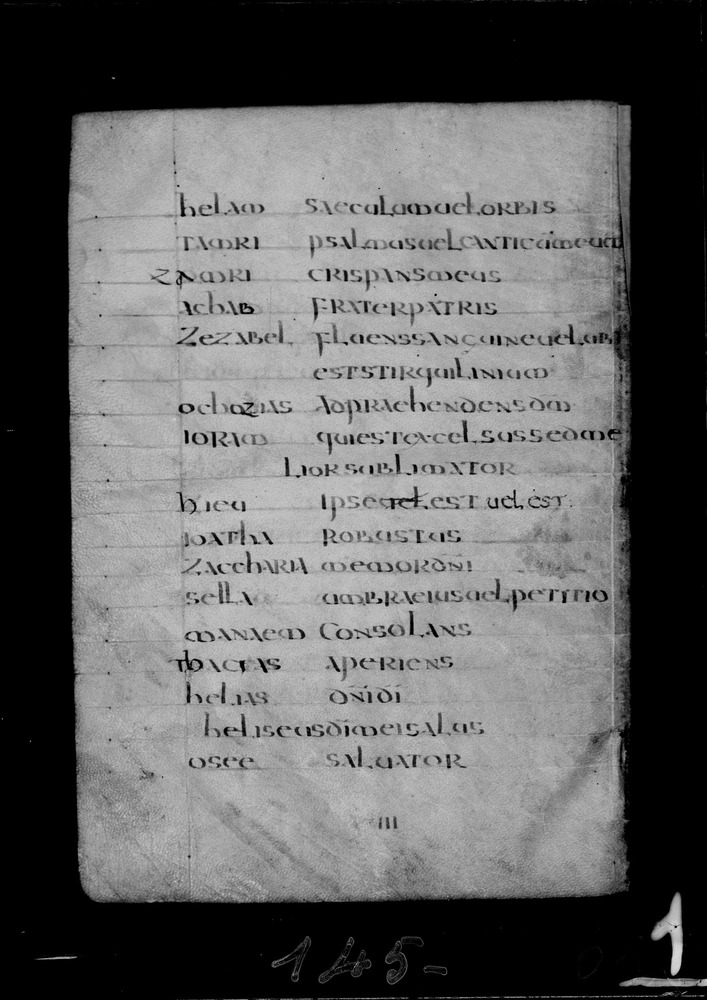 helam saeculumuelorbis
tamri psalmusuelcanticumeum
zamri crispansmeus
achab fraterpatris
Zezabel fluenssanguineuelubi
eststirquilinium
ochozias adpraehendensdm
ioram quiestexcelsussedme
liorsublimator
hieu ipseuelest uel est.
ioatha robustus
Zaccharia memordni
sella umbraeiusuelpetitio
manaem consolans
aperiens
helias dnidi
heliseusdimeisalus
osee saluator
III
145-
1